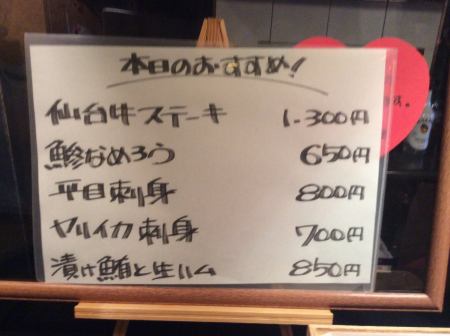 本日のおすすめ!
仙台牛ステーキ 1-300円
鯵なめろう 650円
平目刺身 800円
ヤリイカ刺身 700円
漬け鮪と生ハム 850円
す。